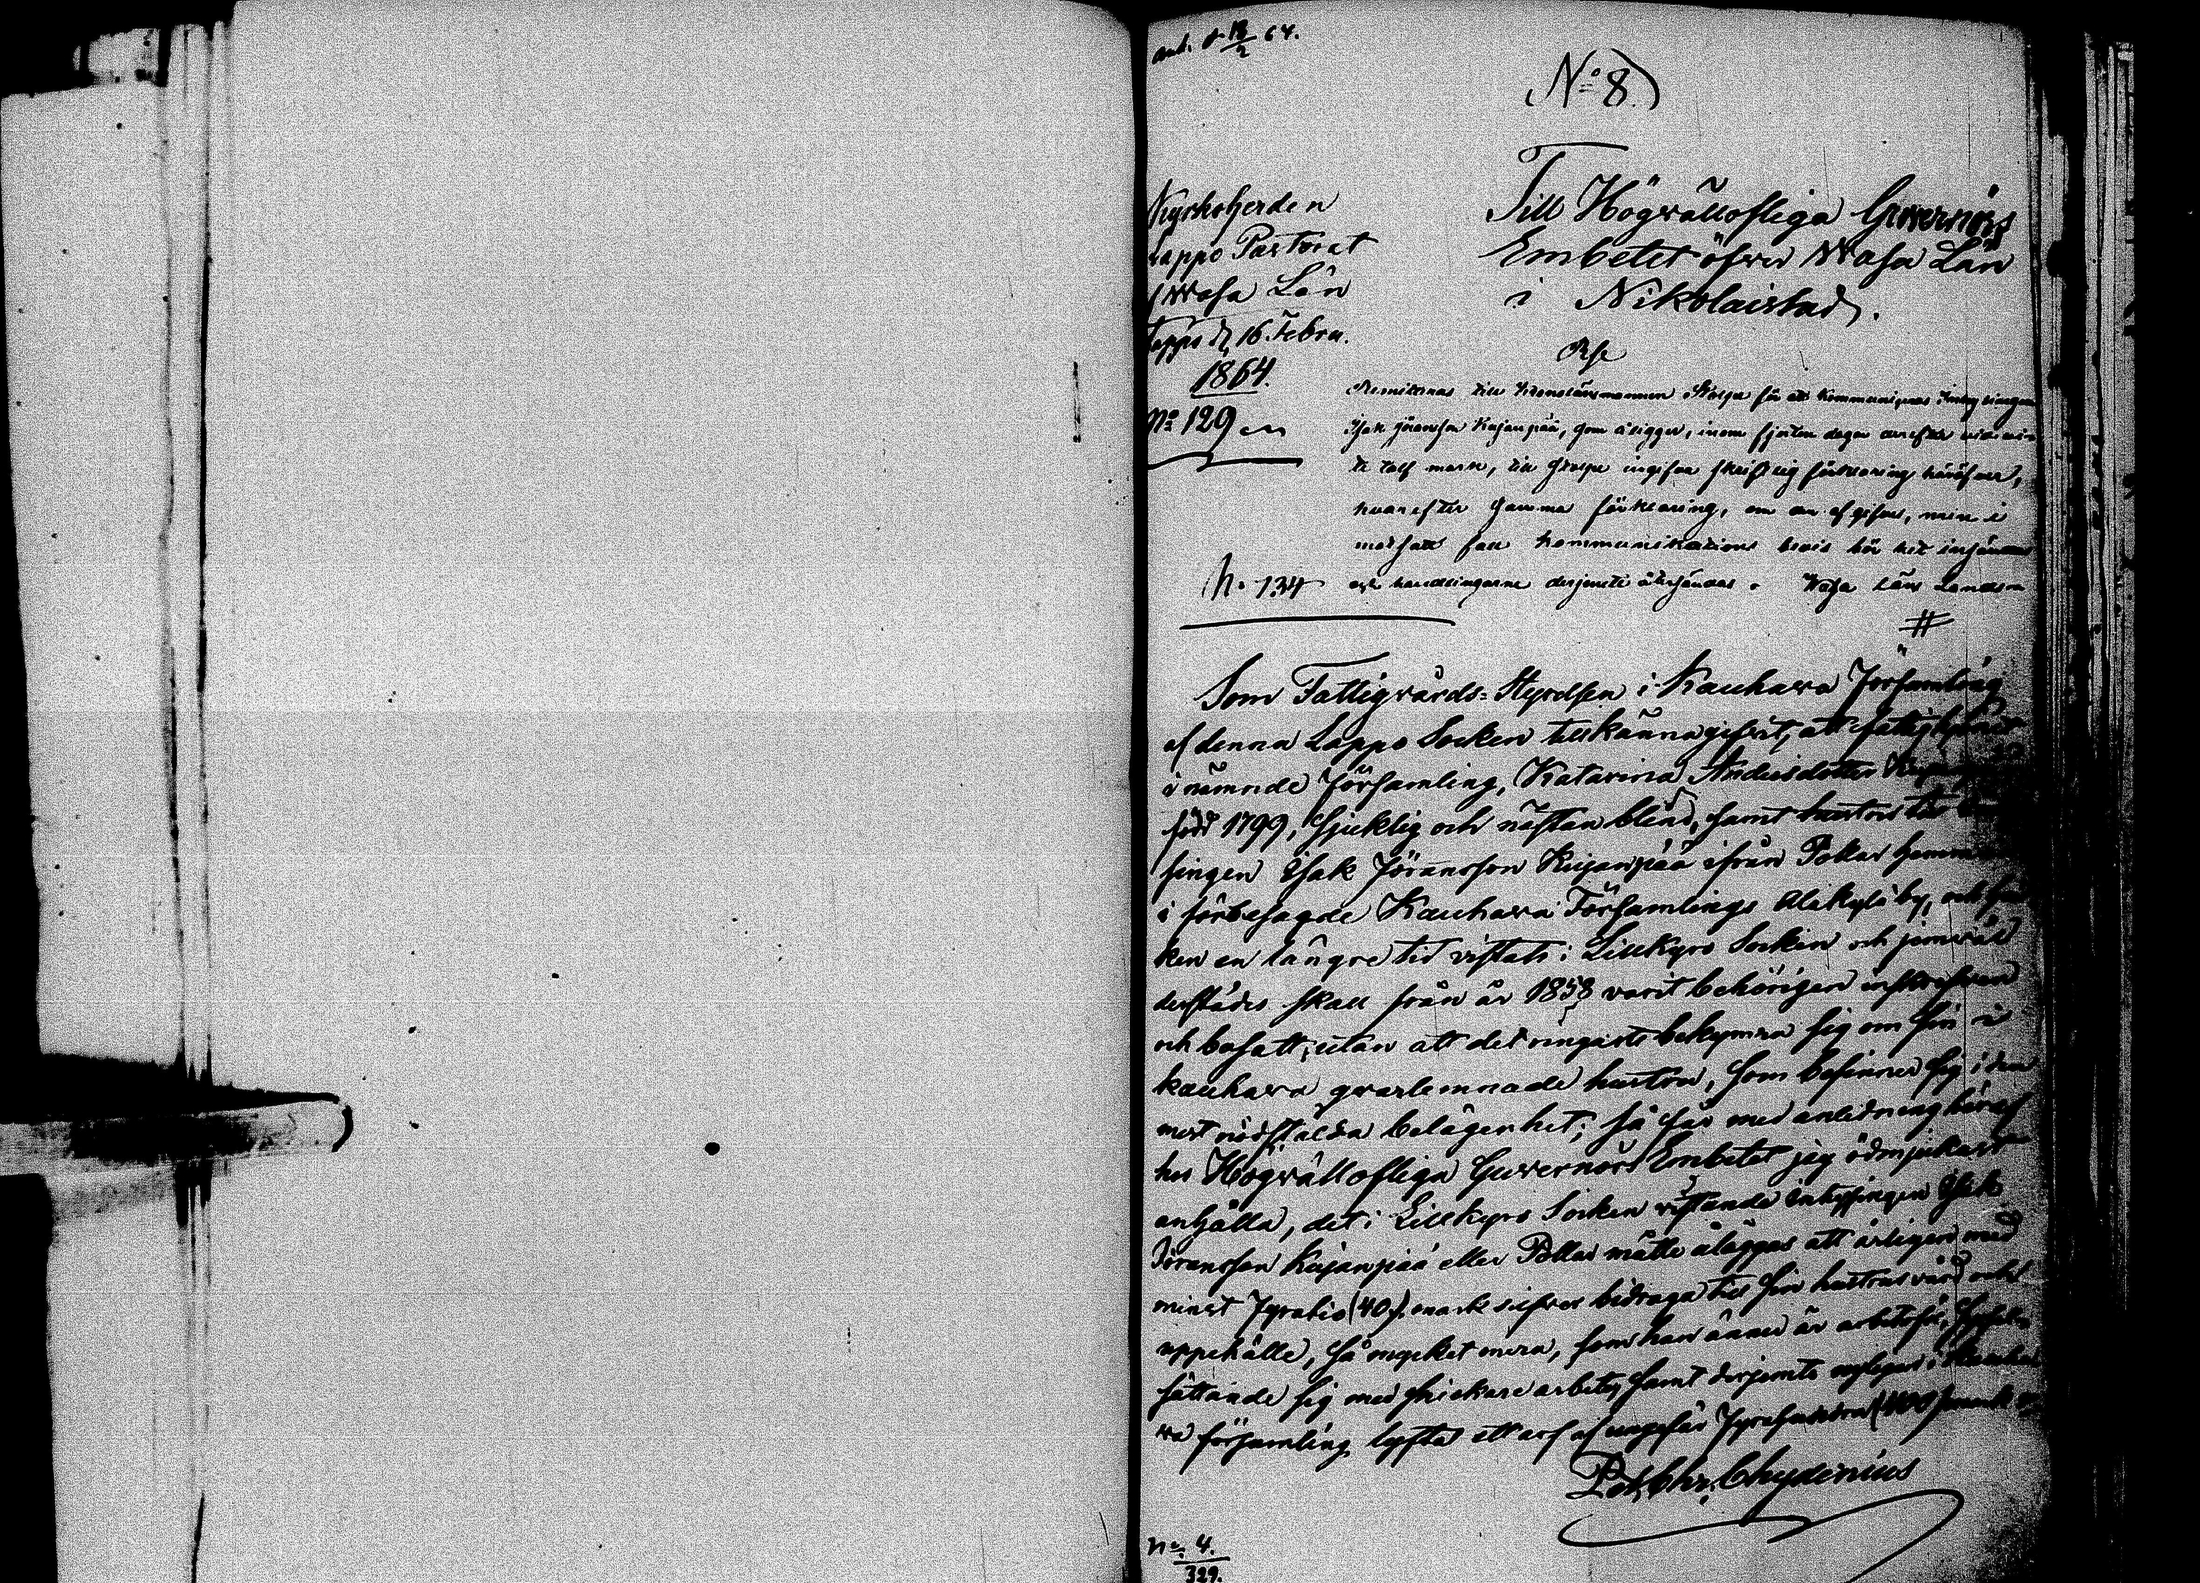 ank. d 18/2 64.
No 8)
Kyrkoherden
Lappo Pastorat
Wasa Län
Lappo d. 16 Febru.
1864.
No 129
Till Högvällofliga Guvernörs
Embetet öfver Wasa Län
i Nikolaistad.
Rse
Remitteras till Kronolänsmannen för att kommuniceras
Isak Göransson Kujanpää, som åligger, inom fjorton dagar derefter vid
te tolf mark, till ingifva skriftlig förklaring häröfver,
hvarefter samma förklaring, om en afgifves, men i
motsatt fall kommunikations bevis bör hit insändas
och handlingarne derjemte återsändas. Wasa Läns Landsk
N. 134
#
Som Fattigvårds-Styrelsen i Kauhava Församling
af denna Lappo Socken tillkännagifvit, att fatthjonet
i nämnde Församling, Katarina Andersdotter
född 1799, sjuklig och nästan blind, samt hustru till
singen Isak Göransson Kujanpää ifrån Pollar hemman
i förbesagde Kauhava Församlings Alakylä by, och
ken en längre tid vistats i Lillkyro Socken och jemväl
derstädes skall från år 1858 varit behörigen inskrifven
och bosatt, utan att det ringaste bekymra sig om sin i
Kauhava qvarlemnade hustru, som befinner sig i den
mest nödstälda belägenhet; så får med anledning häraf
hos Högvällofliga Guvernörs Embetet jeg ödmjukast
anhålla, det i Lillkyro Socken vistande Inhysingen Isak
Göransson Kujanpää eller Pollar måtte åläggas att årligen med
minst Fyratio (40) mark silfver bidraga till sin hustrus vård och
uppehälle, så mycket mera, som han ännu är arbetsför,
sättande sig med snickare arbete, samt derjemte nyligen i Kauha
va församling lyfta ett arf af ungefär Fyrahundra (400) mark
Pet. Chr. Chydenius
No. 4.
329.